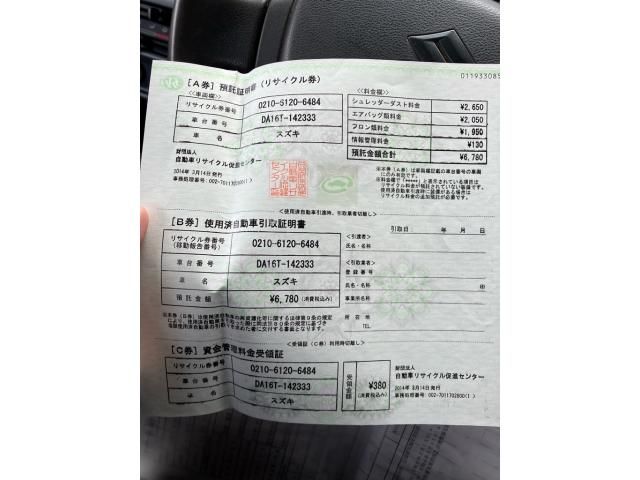 01193308５
［A券］預託証明書（リサイクル券）
<<車両欄>>
リサイクル券番号 0210-6120-6484
車台番号 DA16T-142333
車名 スズキ
<<料金欄>>
シュレッダーダスト料金 ¥2,650
エアバッグ類料金 ¥2,050
フロン類料金 ¥1,950
情報管理料金 ¥130
預託金額合計 ¥6,780
財団法人
自動車リサイクル促進センター
2014年 3月14日発行
※本券（A券）は車両欄記載の車台番号の車両にのみ有効です。
<使用済自動車引渡時、引取業者切離し>
［B券］使用済自動車引取証明書
引取日 年 月 日
リサイクル券番号
（移動報告番号） 0210-6120-6484
車台番号 DA16T-142333
車名 スズキ
預託金額 ¥6,780（消費税込み）
<引渡者>
氏名・名称
<引取業者>
登録番号
氏名・名称 印
事業所名称
所在地
TEL.
<受領証（C券）利用時切離し>
［C券］資金管理料金受領証
リサイクル券番号 0210-6120-6484
車台番号 DA16T-142333
車名 スズキ
受領金額
¥380
（消費税込み）
財団法人
自動車リサイクル促進センター
2014年 3月14日発行